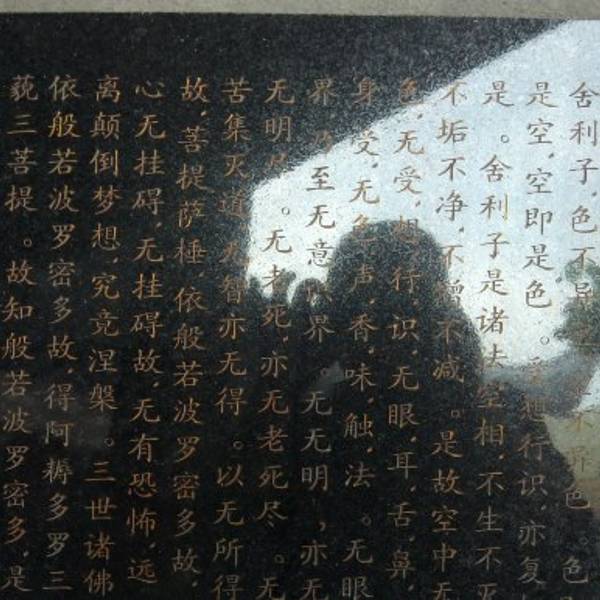 舍利子，色不异空，空不异色。色
是空，空即是色。受想行识，亦复
是。舍利子是诸法空相，不生不灭
不垢不净，不增不减。是故空中无
色，无受，想，行，识，无眼，耳，舌，鼻，
身，受，无色，声，香，味，触，法。无眼
界，乃至无意识界。无无明，亦无
无明尽。无老死，亦无老死尽。无
苦集灭道，无智亦无得。以无所得
故，菩提萨埵，依般若波罗密多故，
心无挂碍，无挂碍故，无有恐怖，远
离颠倒梦想，究竟涅槃。三世诸佛
依般若波罗密多故，得阿耨多罗三
藐三菩提。故知般若波罗密多，是